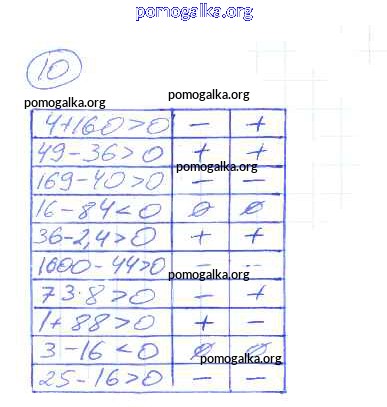 pomogalka.org
10
pomogalka.org
pomogalka.org
4+160>0 - +
49-36>0 + +
pomogalka.org
169-40>0 - -
16-84<0 ø ø
36-2,4>0 + +
1600-44>0 - --
pomogalka.org
73·8>0 - +
1+88>0 + -
3-16<0 ø ø
pomogalka.org
25-16>0 - -